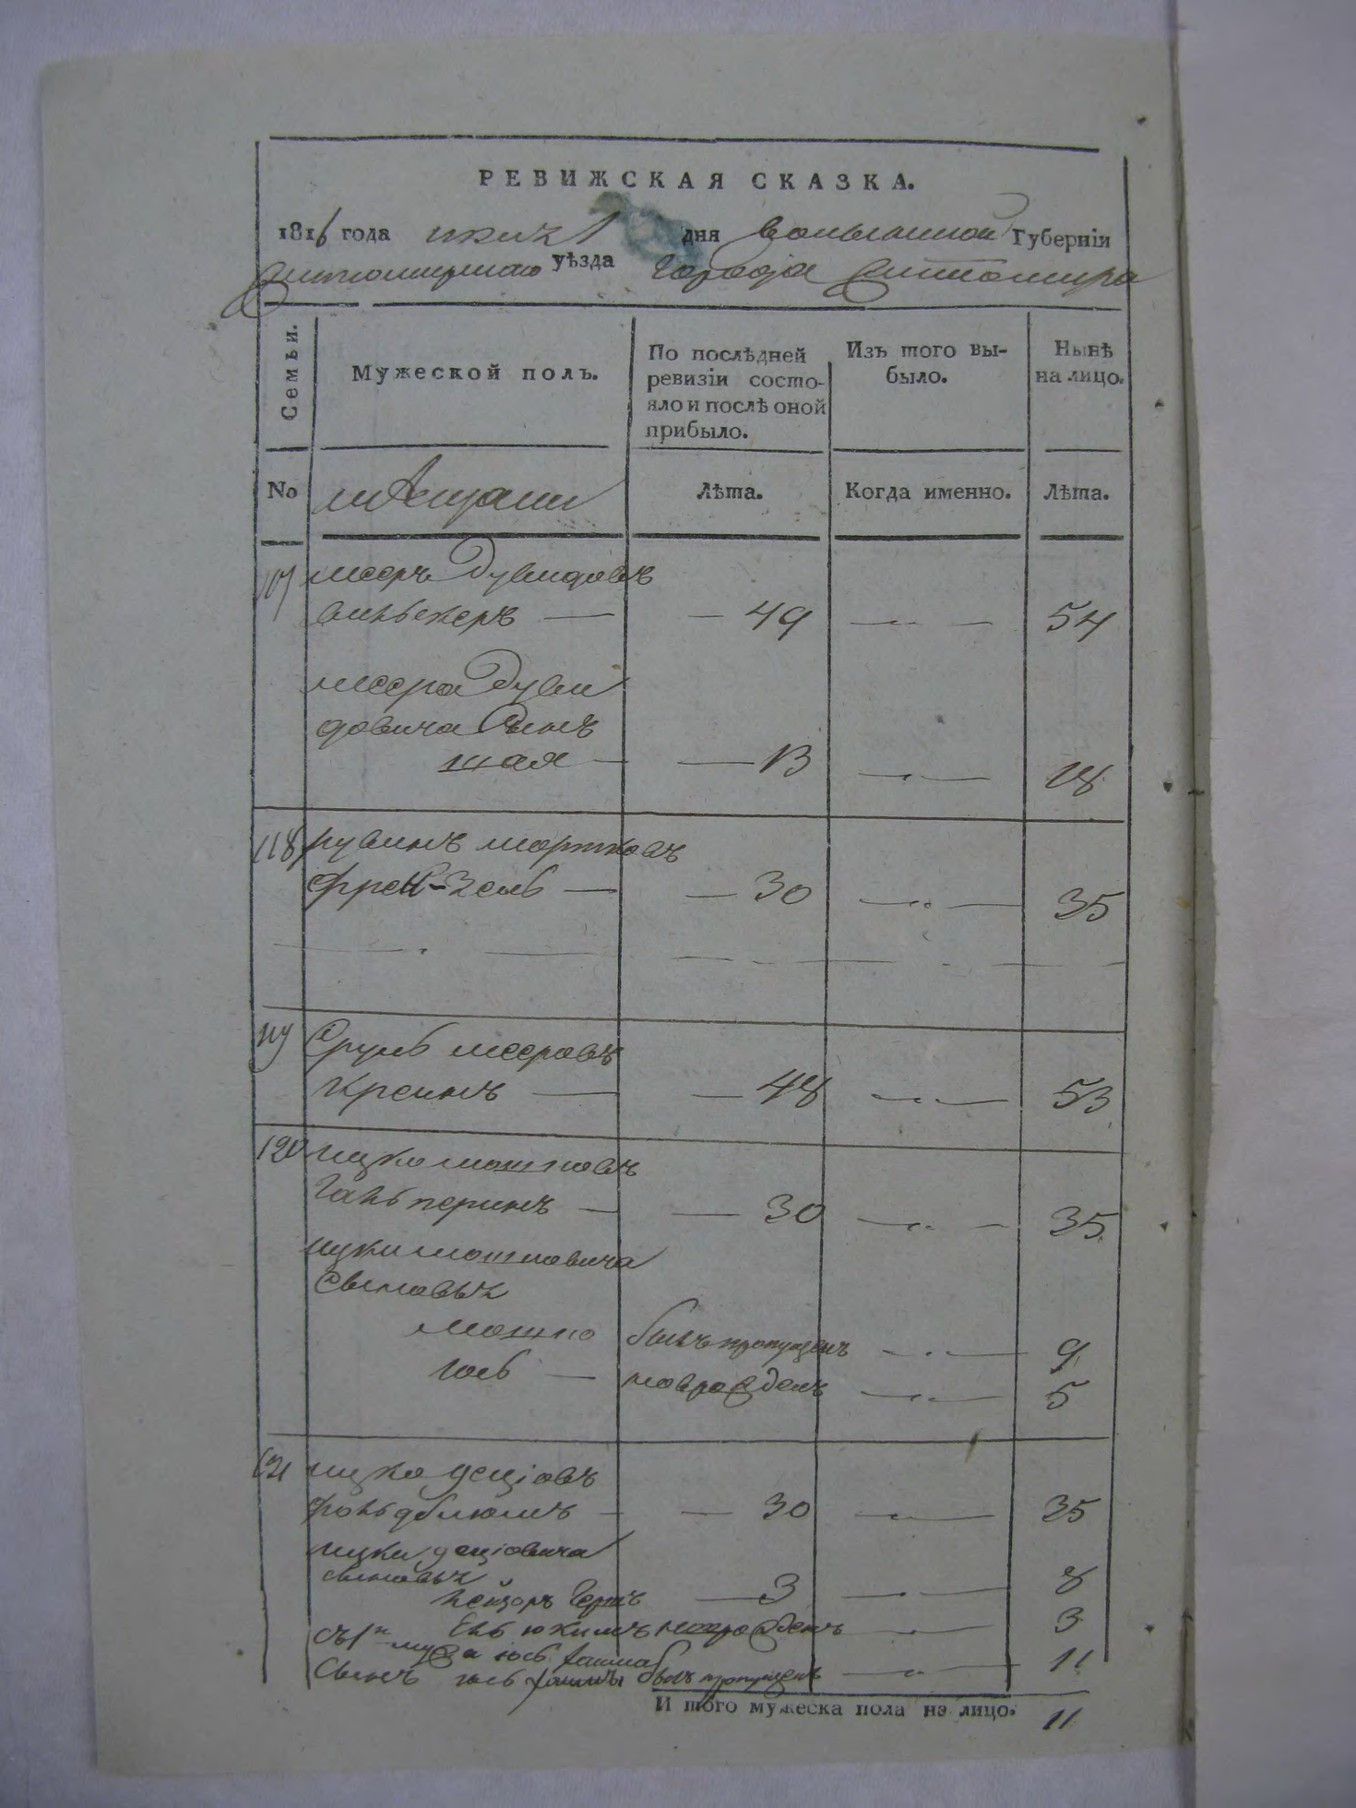 РЕВИЖСКАЯ СКАЗКА.
1816 года дня Волынской Губерніи
Житомирскаго уѣзда Города Житомира
Семьи.
Мужеской полъ.
По послѣдней
ревизіи состо-
яло и послѣ оной
прибыло.
Изъ того вы-
было.
Нынѣ
на лицо.
No
мѣщане
Лѣта.
Когда именно.
Лѣта.
мееръ Дувидовъ
— 49 — 54
меера Дуви
довича Сынъ
шая — 13 — 18
118 рувинъ мортковъ
— 30 — 35
119 Сруль мееровъ
креинъ — 48 — 53
120 ицко мошковъ
Гальперинъ — 30 — 35
ицки мошковича
Сыновья
мошко былъ пропущенъ — 9
іось — новорожденъ — 5
121 ицко
фольдблюмъ — 30 — 35
ицки
сыновья
— 3 — 8
новорожденъ — 3
Сынъ былъ пропущенъ — 11
И того мужеска пола на лицо. 11